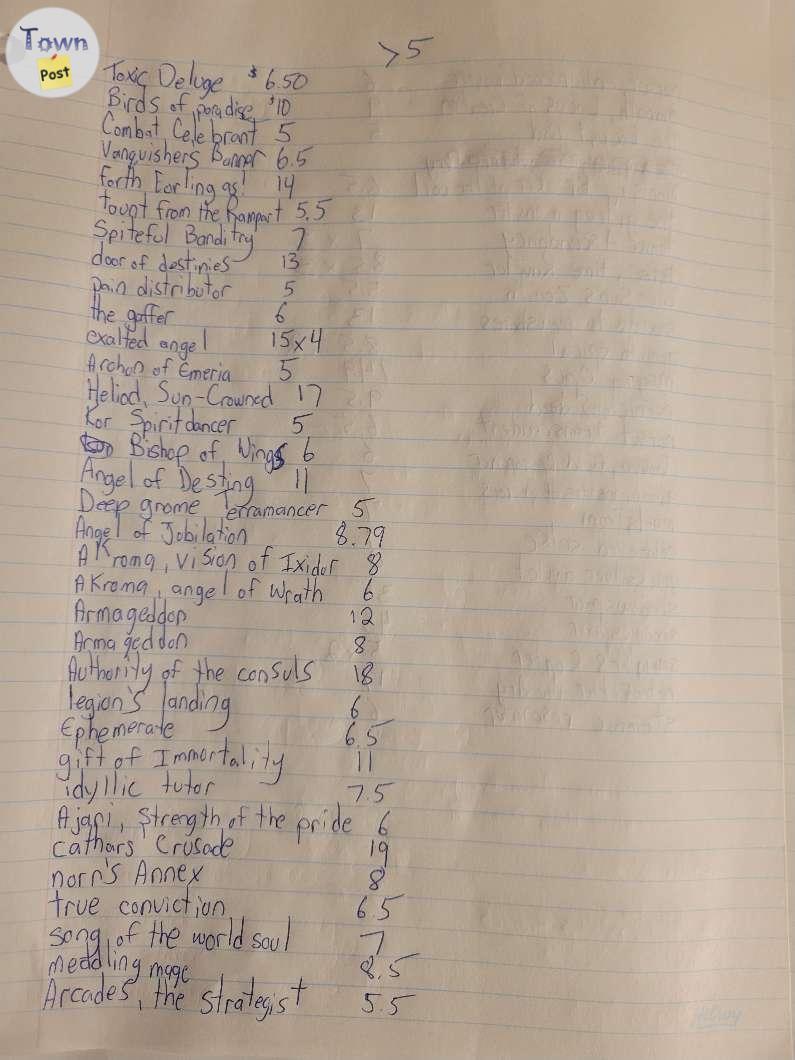 Town
Post
>5
Toxic Deluge $6.50
Birds of paradise $10
Combat Celebrant 5
Vanquishers Banner 6.5
forth Eorlingas! 14
tount from the Rampart 5.5
Spiteful Banditry 7
door of destinies 13
pain distributor 5
the gaffer 6
exalted angel 15x4
Archon of Emeria 5
Heliod, Sun-Crowned 17
Kor Spiritdancer 5
Bishop of Wings 6
Angel of Destiny 11
Deep gnome Terramancer 5
Angel of Jobilation 8.79
AKroma, vision of Ixidor 8
AKroma, angel of Wrath 6
Armageddon 12
Armageddon 8
Authority of the consuls 18
legion's landing 6
Ephemerate 6.5
gift of Immortality 11
idyllic tutor 7.5
Ajani, Strength of the pride 6
cathars' Crusade 19
norn's Annex 8
true conviction 6.5
song of the world soul 7
meddling mage 8.5
Arcades, the strategist 5.5
Hilroy